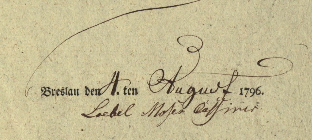 Breslau den 4. ten August 1796.
Loebel Moses